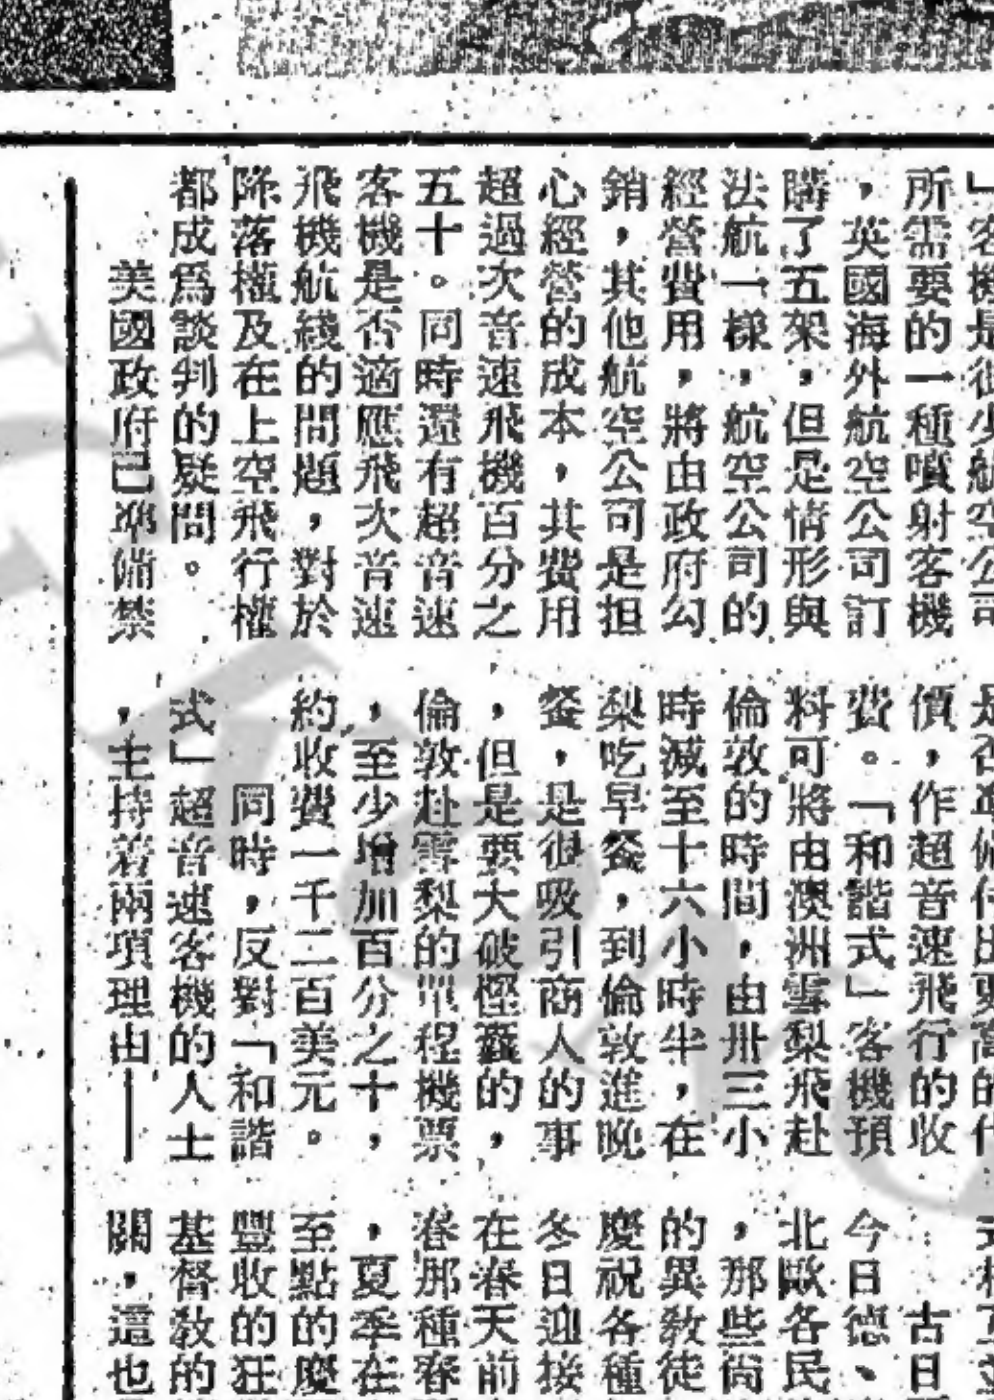 」客機是很少航空公司
所需要的一種噴射客機
，英國海外航空公司訂
購了五架，但是情形與
法航一樣，航空公司的
經營費用，將由政府勾
銷，其他航空公司是担
心經營的成本，其費用
超過次音速飛機百分之
五十。同時還有超音速
客機是否適應飛次音速
飛機航綫的問題，對於
降落權及在上空飛行權
都成爲談判的疑問。
美國政府已準備禁
是否準備付出更高的代
價，作超音速飛行的收
費。「和諧式」客機預
料可將由澳洲雪梨飛赴
倫敦的時間，由卅三小
時減至十六小時半，在
梨吃早餐，到倫敦進晚
餐，是很吸引商人的事
，但是要大破慳囊的，
倫敦赴雪梨的單程機票
，至少增加百分之十，
約收費一千二百美元。
同時，反對「和諧
式」超音速客機的人士
，主持着兩項理由——
古日
今日德、
北歐各民
，那些尙
的異敎徒
慶祝各種
冬日迎接
在春天前
春那種春
，夏季在
至點的慶
豐收的狂
基督敎的
關，這也